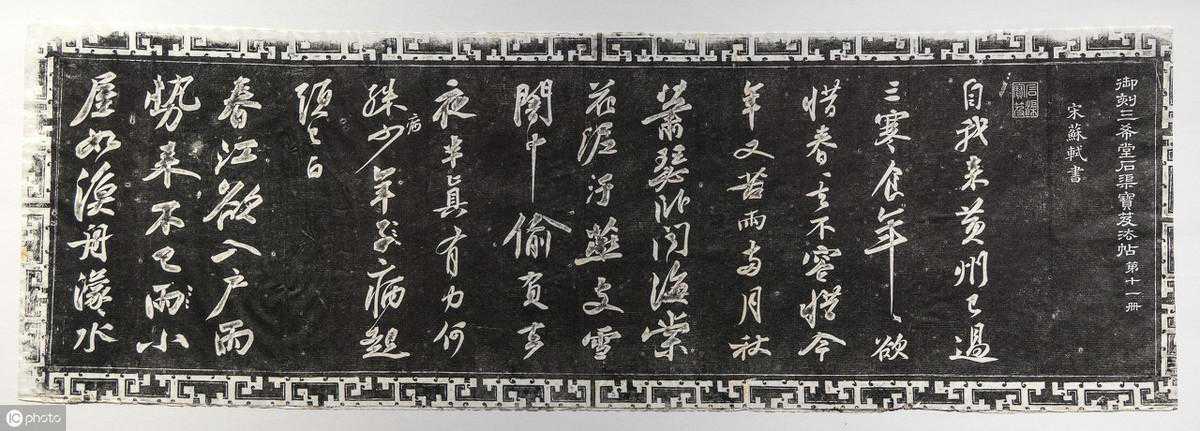 御刻三希堂石渠寶笈法帖 第十一冊
石渠寶笈
宋蘇軾書
自我来黄州已過
三寒食年〻欲
惜春〻去不容惜今
年又苦雨兩月秋
蕭瑟卧聞海棠
花泥汙燕支雪
闇中偷負去
夜半真有力何
殊病少年子病起
頭已白
春江欲入戶雨
勢来不已雨小
屋如漁舟濛〻水
IC photo